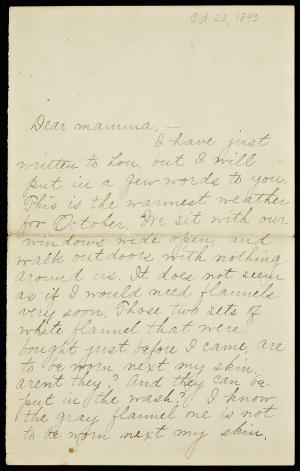 Oct. 22, 1893
Dear mamma, —
I have just
written to Lou, but I will
put in a few words to you.
This is the warmest weather
for October. We sit with our
windows wide open, and
walk outdoors with nothing
around us. It does not seem
as if I would need flannels
very soon. Those two sets of
white flannel that were
bought just before I came, are
to be worn next my skin,
aren't they? And they can be
put in the wash? I know
the gray flannel one is not
to be worn next my skin.